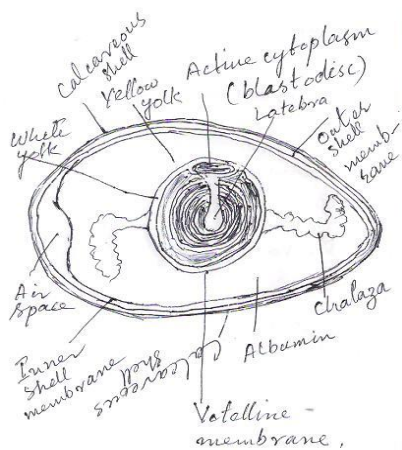 Calcareous
shell
Yellow
yolk
Active cytoplasm
(blastodisc)
Latebra
Outer
shell
memb-
rane
White
yolk
Air
Space
Chalaza
Inner
shell
membrane
Calcareous
shell
Albumin
Vetelline -
membrane.